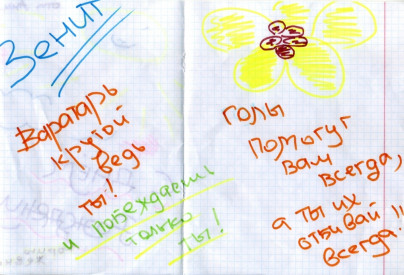 Зенит
Варатарь
крутой
ведь
ты!
и побеждаешь
только
ты!
голы
помогут
вам
всегда,
а ты их
отбивай
всегда!!